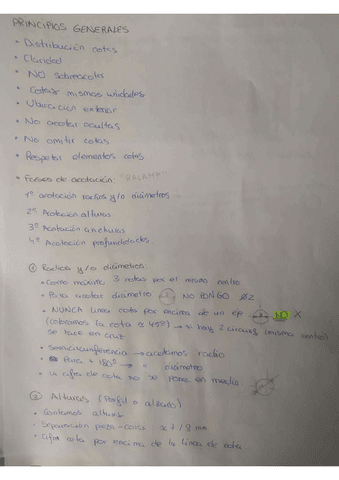 PRINCIPIOS GENERALES
• Distribución cotas
• Claridad
• NO sobreacotar
• Cotas mismas unidades
• Ubicación exterior
• No acotar ocultas
• No omitir cotas
• Respetar elementos cotas
• Fases de acotación: "RALAMP"
1º acotación radios y/o diámetros
2º Acotación alturas
3º Acotación anchuras
4º Acotación profundidades.
① Radios y/o diámetros:
• Como máximo 3 cotas por el mismo centro
• Para acotar diametro NO PONGO ⌀2
• NUNCA linea cota por encima de un eje NO X
(colocamos la cota a 45º) → si hay 2 circunf (mismo centro)
se hace en cruz
• Semicircunferencia → acotamos radio
• Para + 180º → " diámetro
• La cifra de cota no se pone en medio.
② Alturas (Perfil o alzado)
• Contamos alturas
• Separación pieza-cotas x 7/8 mm
• Cifra cota por encima de la linea de cota